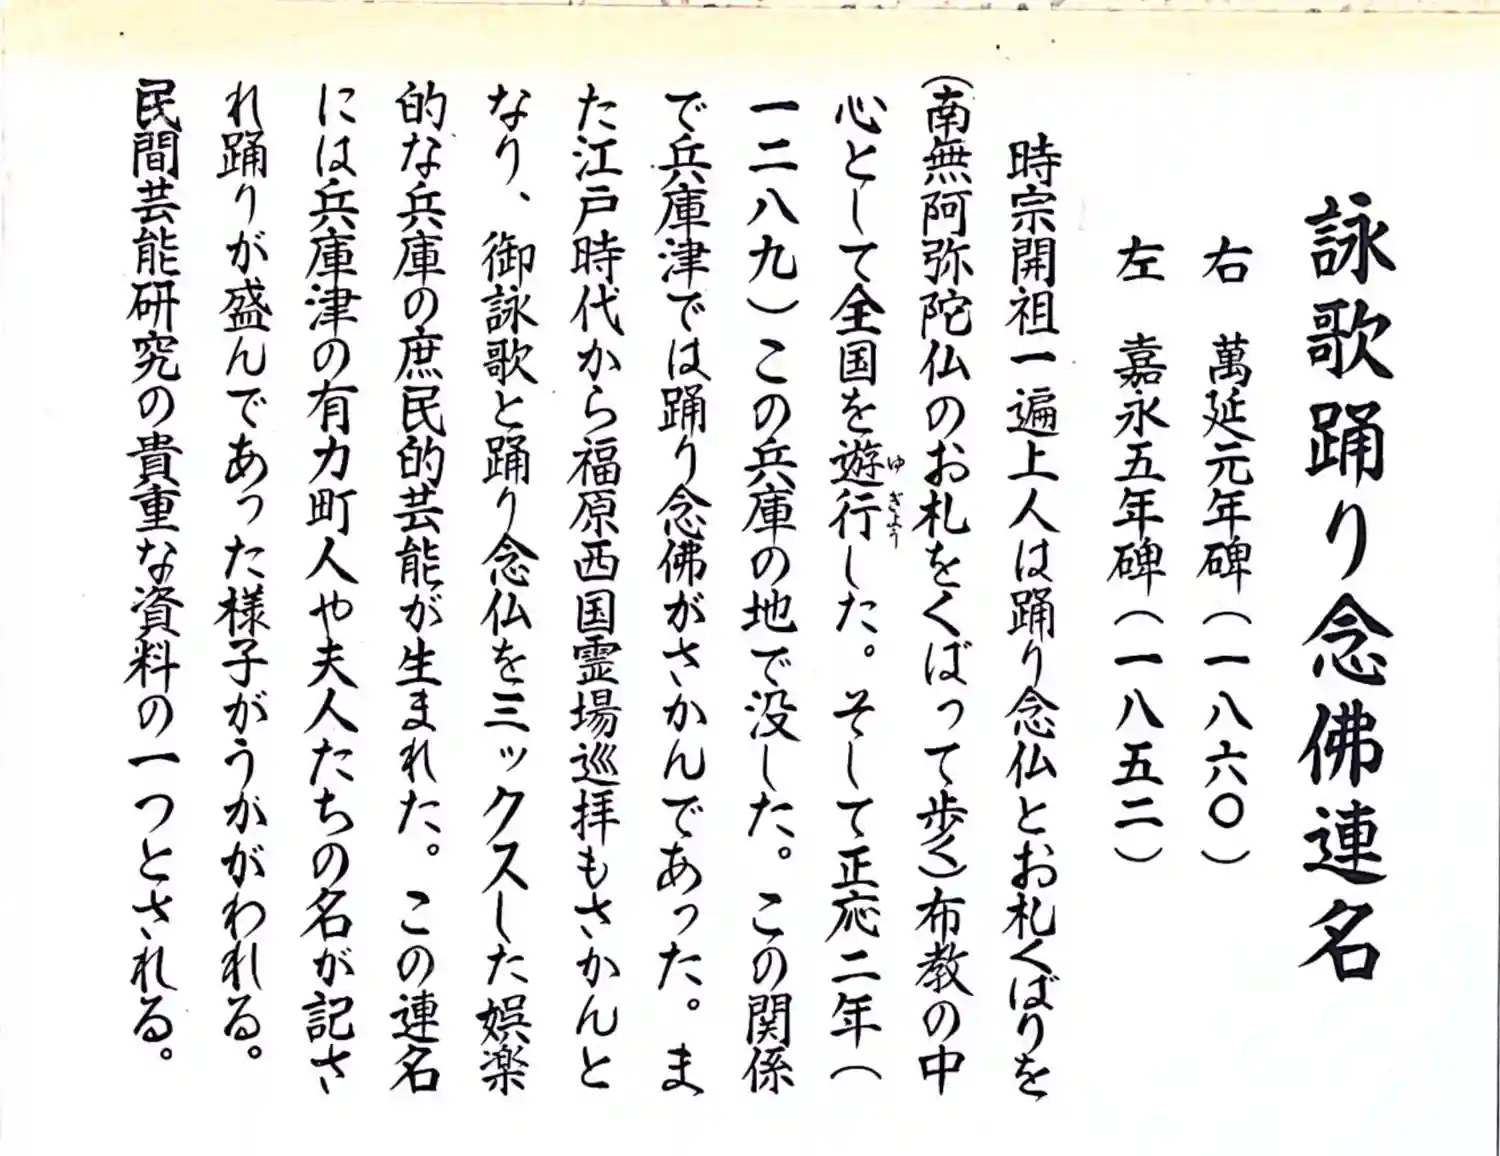 詠歌踊り念佛連名
右 萬延元年碑(一八六〇)
左 嘉永五年碑(一八五二)
時宗開祖一遍上人は踊り念仏とお札くばりを
(南無阿弥陀仏のお札をくばって歩く)布教の中
心として全国を遊行した。そして正応二年(
ゆぎょう
一二八九)この兵庫の地で没した。この関係
で兵庫津では踊り念佛がさかんであった。ま
た江戸時代から福原西国霊場巡拝もさかんと
なり、御詠歌と踊り念仏を三ックスした娯楽
的な兵庫の庶民的芸能が生まれた。この連名
には兵庫津の有力町人や夫人たちの名が記さ
れ踊りが盛んであった様子がうががわれる。
民間芸能研究の貴重な資料の一つとされる。